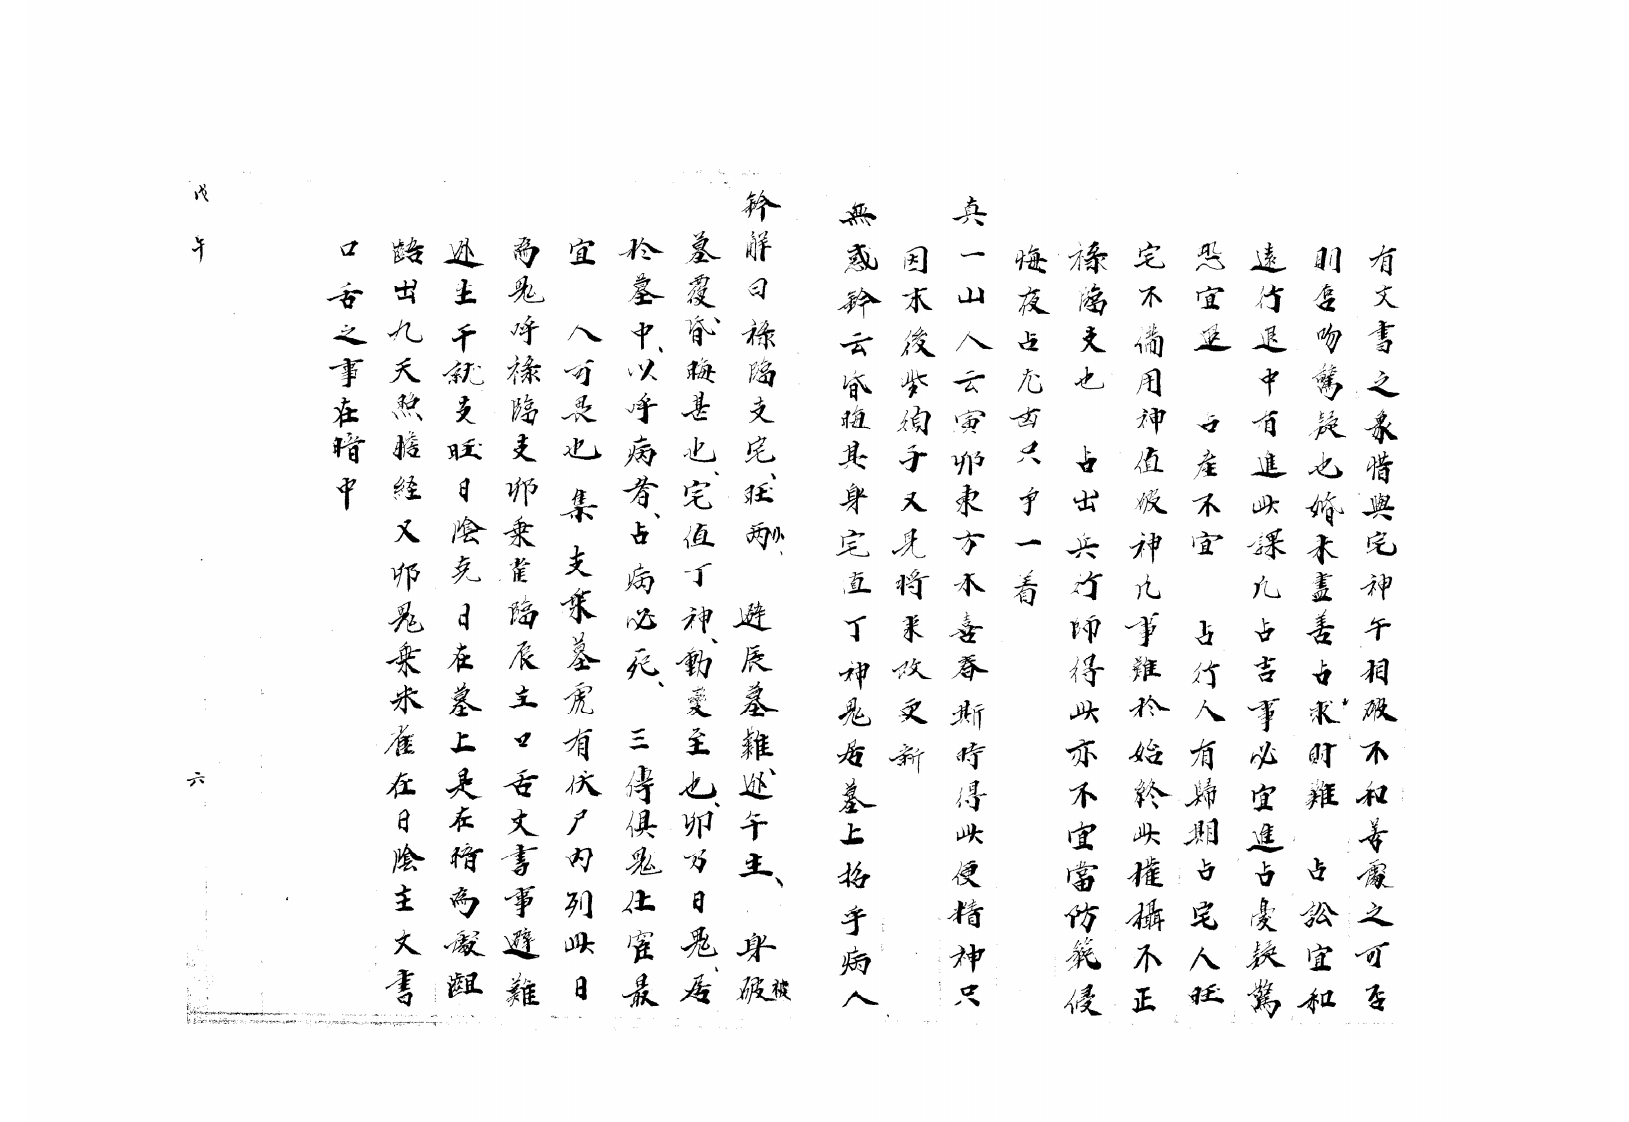 有文書之象惜與宅神午相破不和善處之可否
則唇吻驚疑也婚未盡善占求財難　占訟宜和
遠行退中有進此課凡占吉事必宜進占憂疑驚
恐宜退　占產不宜　占行人有歸期占宅人旺
宅不備用神值破神凡事難於始終此權攝不正
祿臨支也　占出兵行師得此亦不宜當防範侵
晦夜占尤凶只爭一着
真一山人云寅卯東方木喜春斯時得此便精神只
因末後些須子又見將來改更新
無惑鈐云昏晦其身宅值丁神鬼居墓上招呼病人
鈐解曰祿臨支宅、旺兩　避辰墓難、逃午生、身破被
墓覆、昏晦甚也、宅值丁神、動變至也、卯乃日鬼、居
於墓中、以呼病者、占病必死、　三傳俱鬼仕宦最
宜　人可畏也　集　支乘墓虎有伏尸內列此日
為鬼呼祿臨支卯乘雀臨辰主口舌文書事避難
逃生干就支旺日陰克日在墓上是在暗為處齟
齬出九天照膽經又卯鬼乘朱雀在日陰主文書
口舌之事在暗中
戊午
六